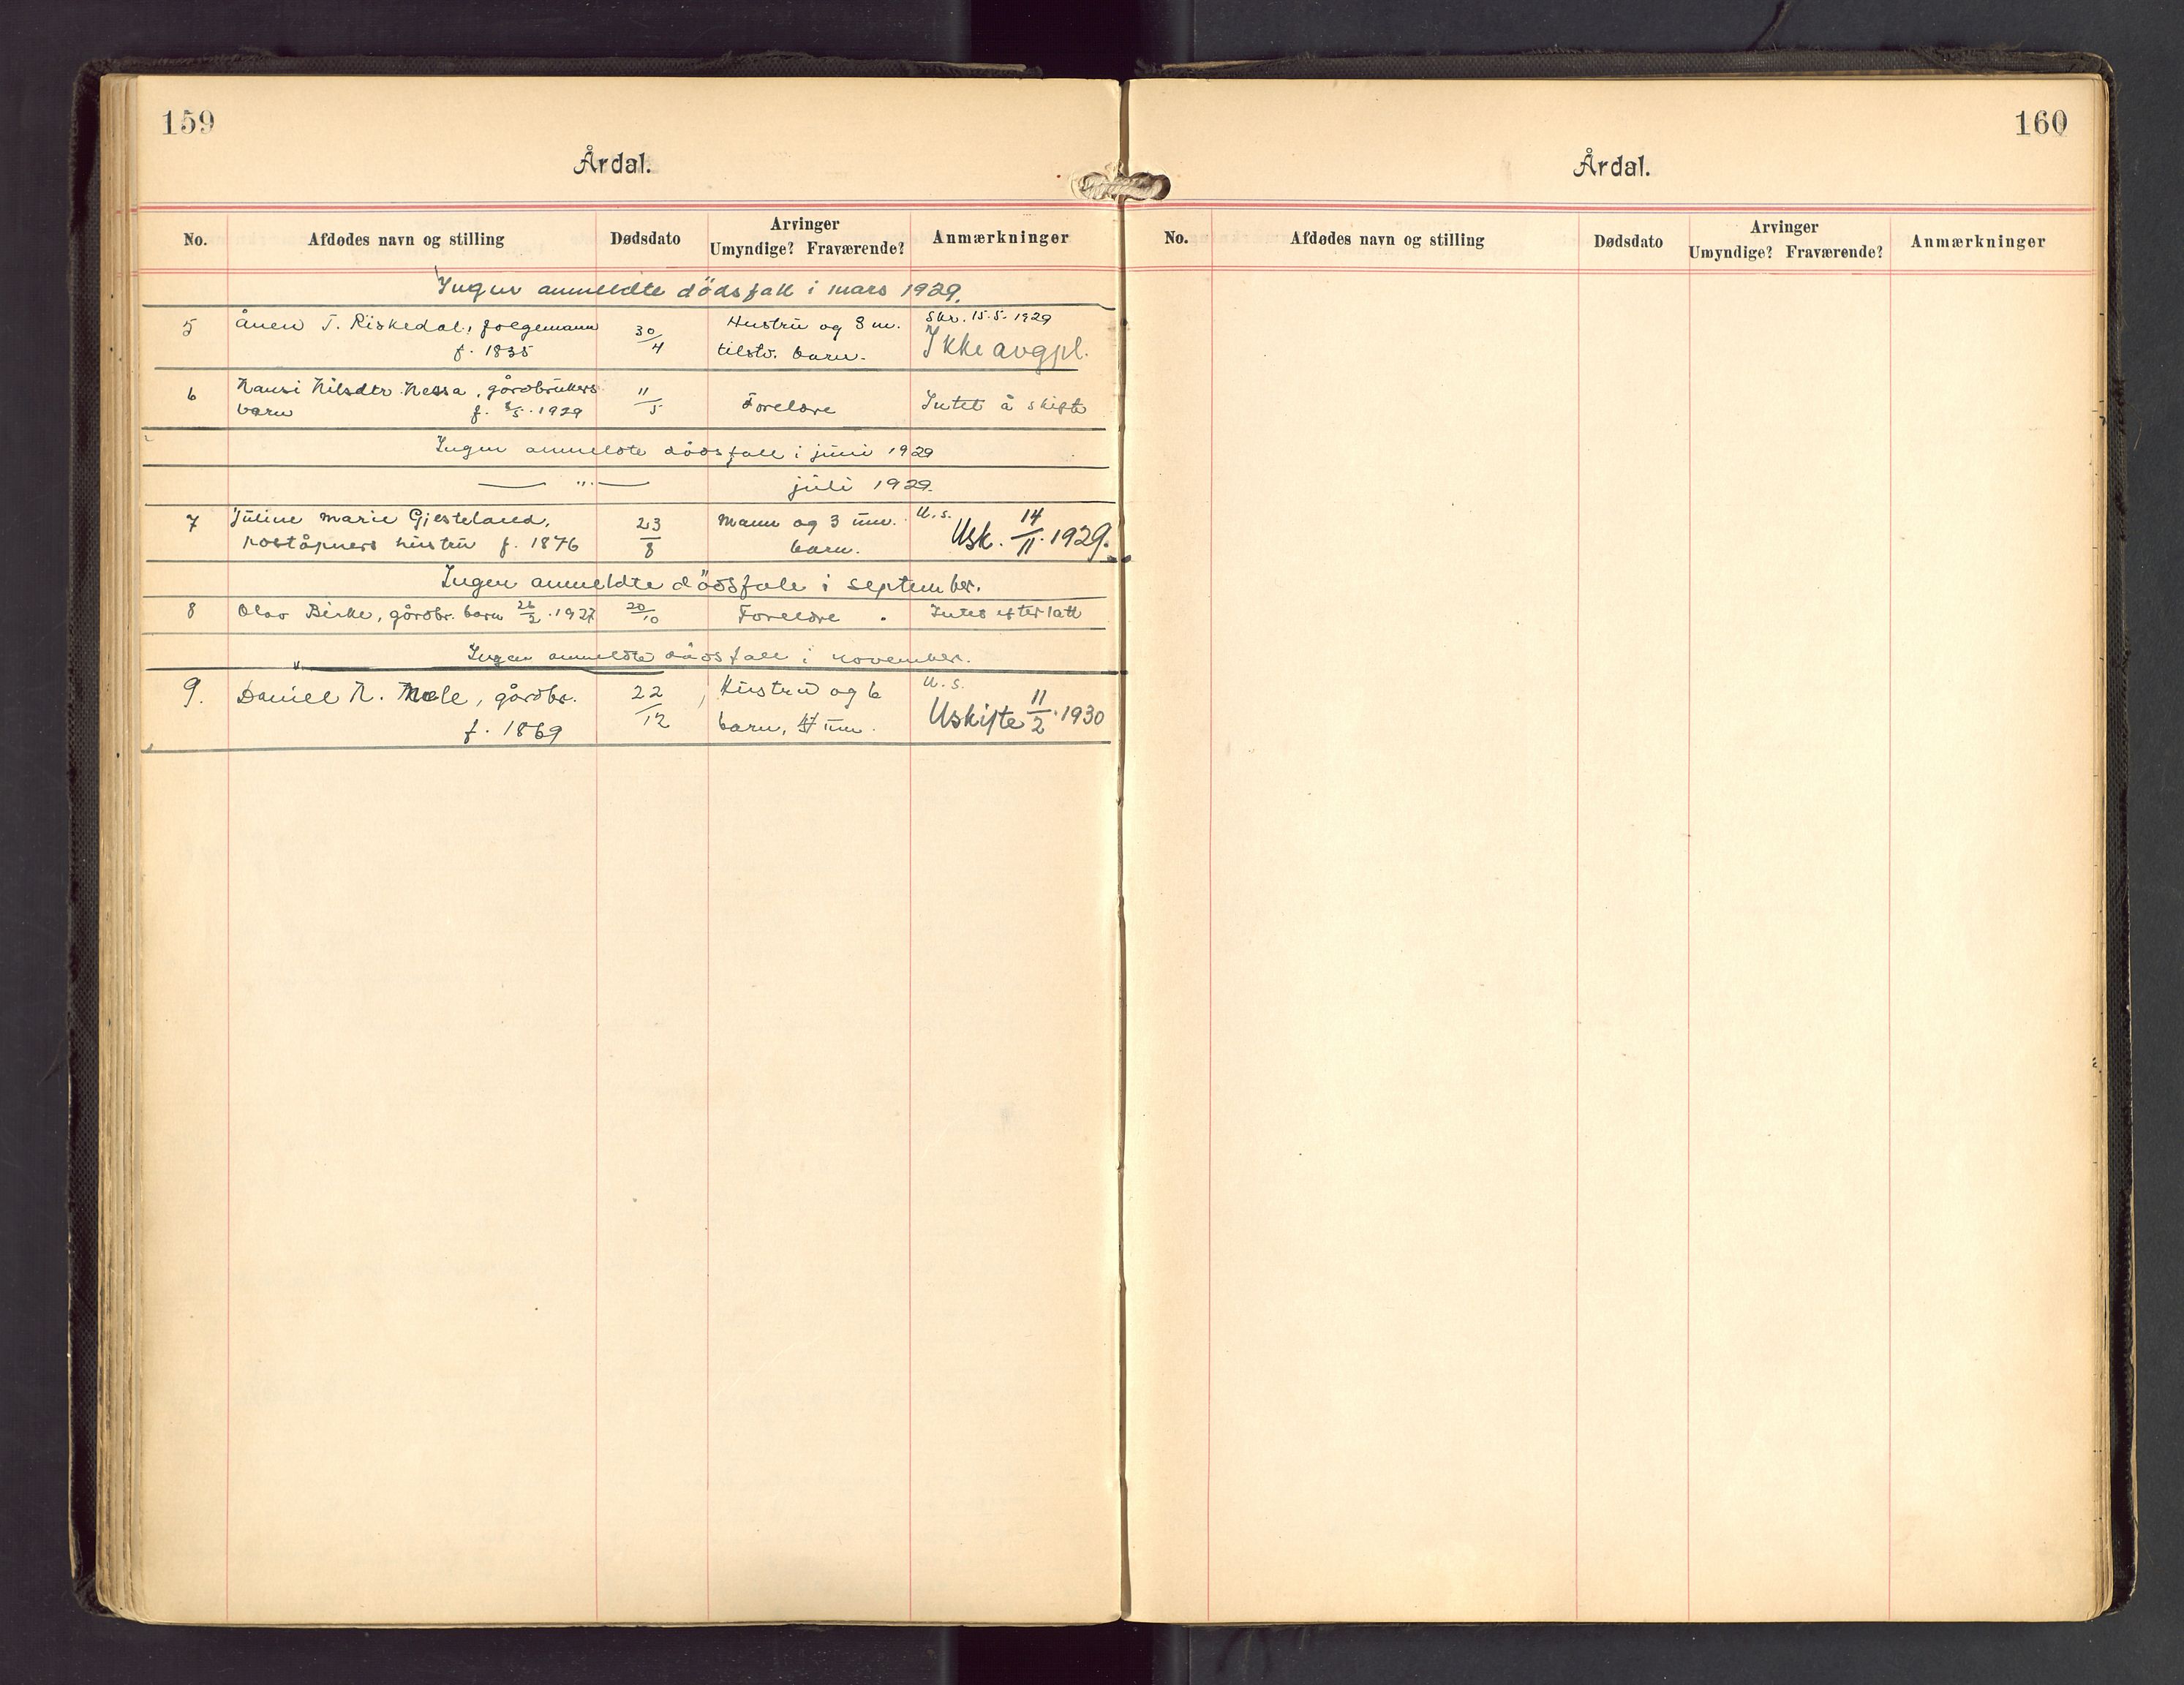 159
Årdal.
No. Afdødes navn og stilling Dødsdato Arvinger Umyndige? Fraværende? Anmærkninger
Ingen anmeldte dödsfall i mars 1929.
5 Ånen T. Riskedal, folgemann 30/4 Hustru og 8 m. Skr. 15.5.1929
f. 1835 tilstr. barn. Ikke avgpl.
6 Nansi Nilsdtr. Nessa, gårdbrukers 11/5 Foreldre Intet å skifte
barn f. 8/5. 1929
Ingen anmeldte dödsfall i juni 1929
— " — juli 1929.
7 Juline Marie Gjesteland, 23/8 Mann og 3 um. U.s.
poståpners hustru f. 1876 barn. Usk. 14/11. 1929.
Ingen anmeldte dödsfall i september.
8 Olav Birke, gårdbr. barn 26/2. 1927 20/10 Foreldre . Intet efterlatt
Ingen anmeldte dödsfall i november.
9. Daniel N. Mæle, gårdbr. 22/12 Hustru og 6 U.s.
f. 1869 barn, um. Uskifte 11/2. 1930
160
Årdal.
No. Afdødes navn og stilling Dødsdato Arvinger Umyndige? Fraværende? Anmærkninger